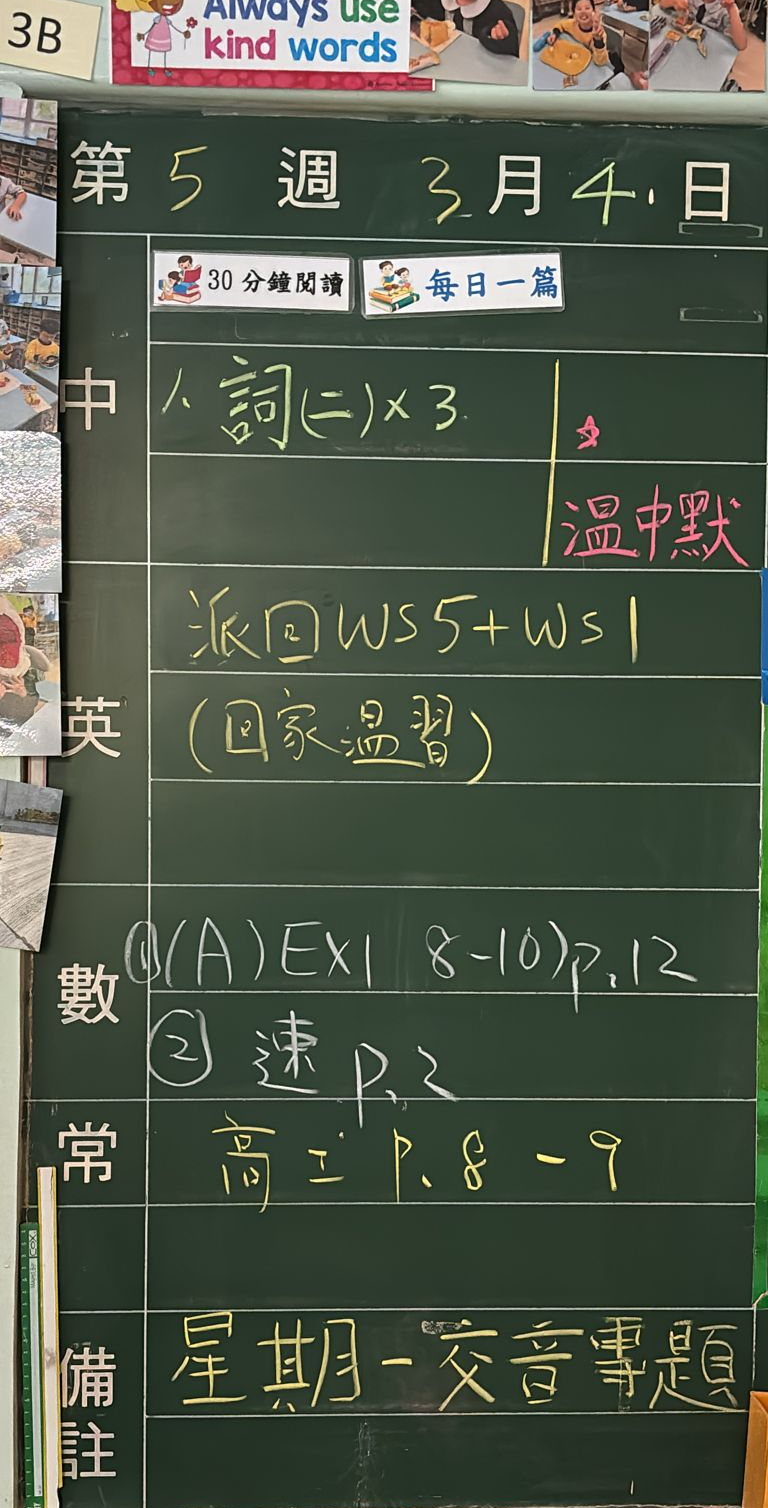 3B
Always use
kind words
第 5 週 3 月 4. 日
30 分鐘閱讀 每日一篇
中
1. 詞(二)×3
☆
溫中默
英
派回WS5+WS1
(回家溫習)
數
①(A)EX1 8-10)p.12
② 速 p.2
常
高工 P.8-9
備註
星期一交音專題